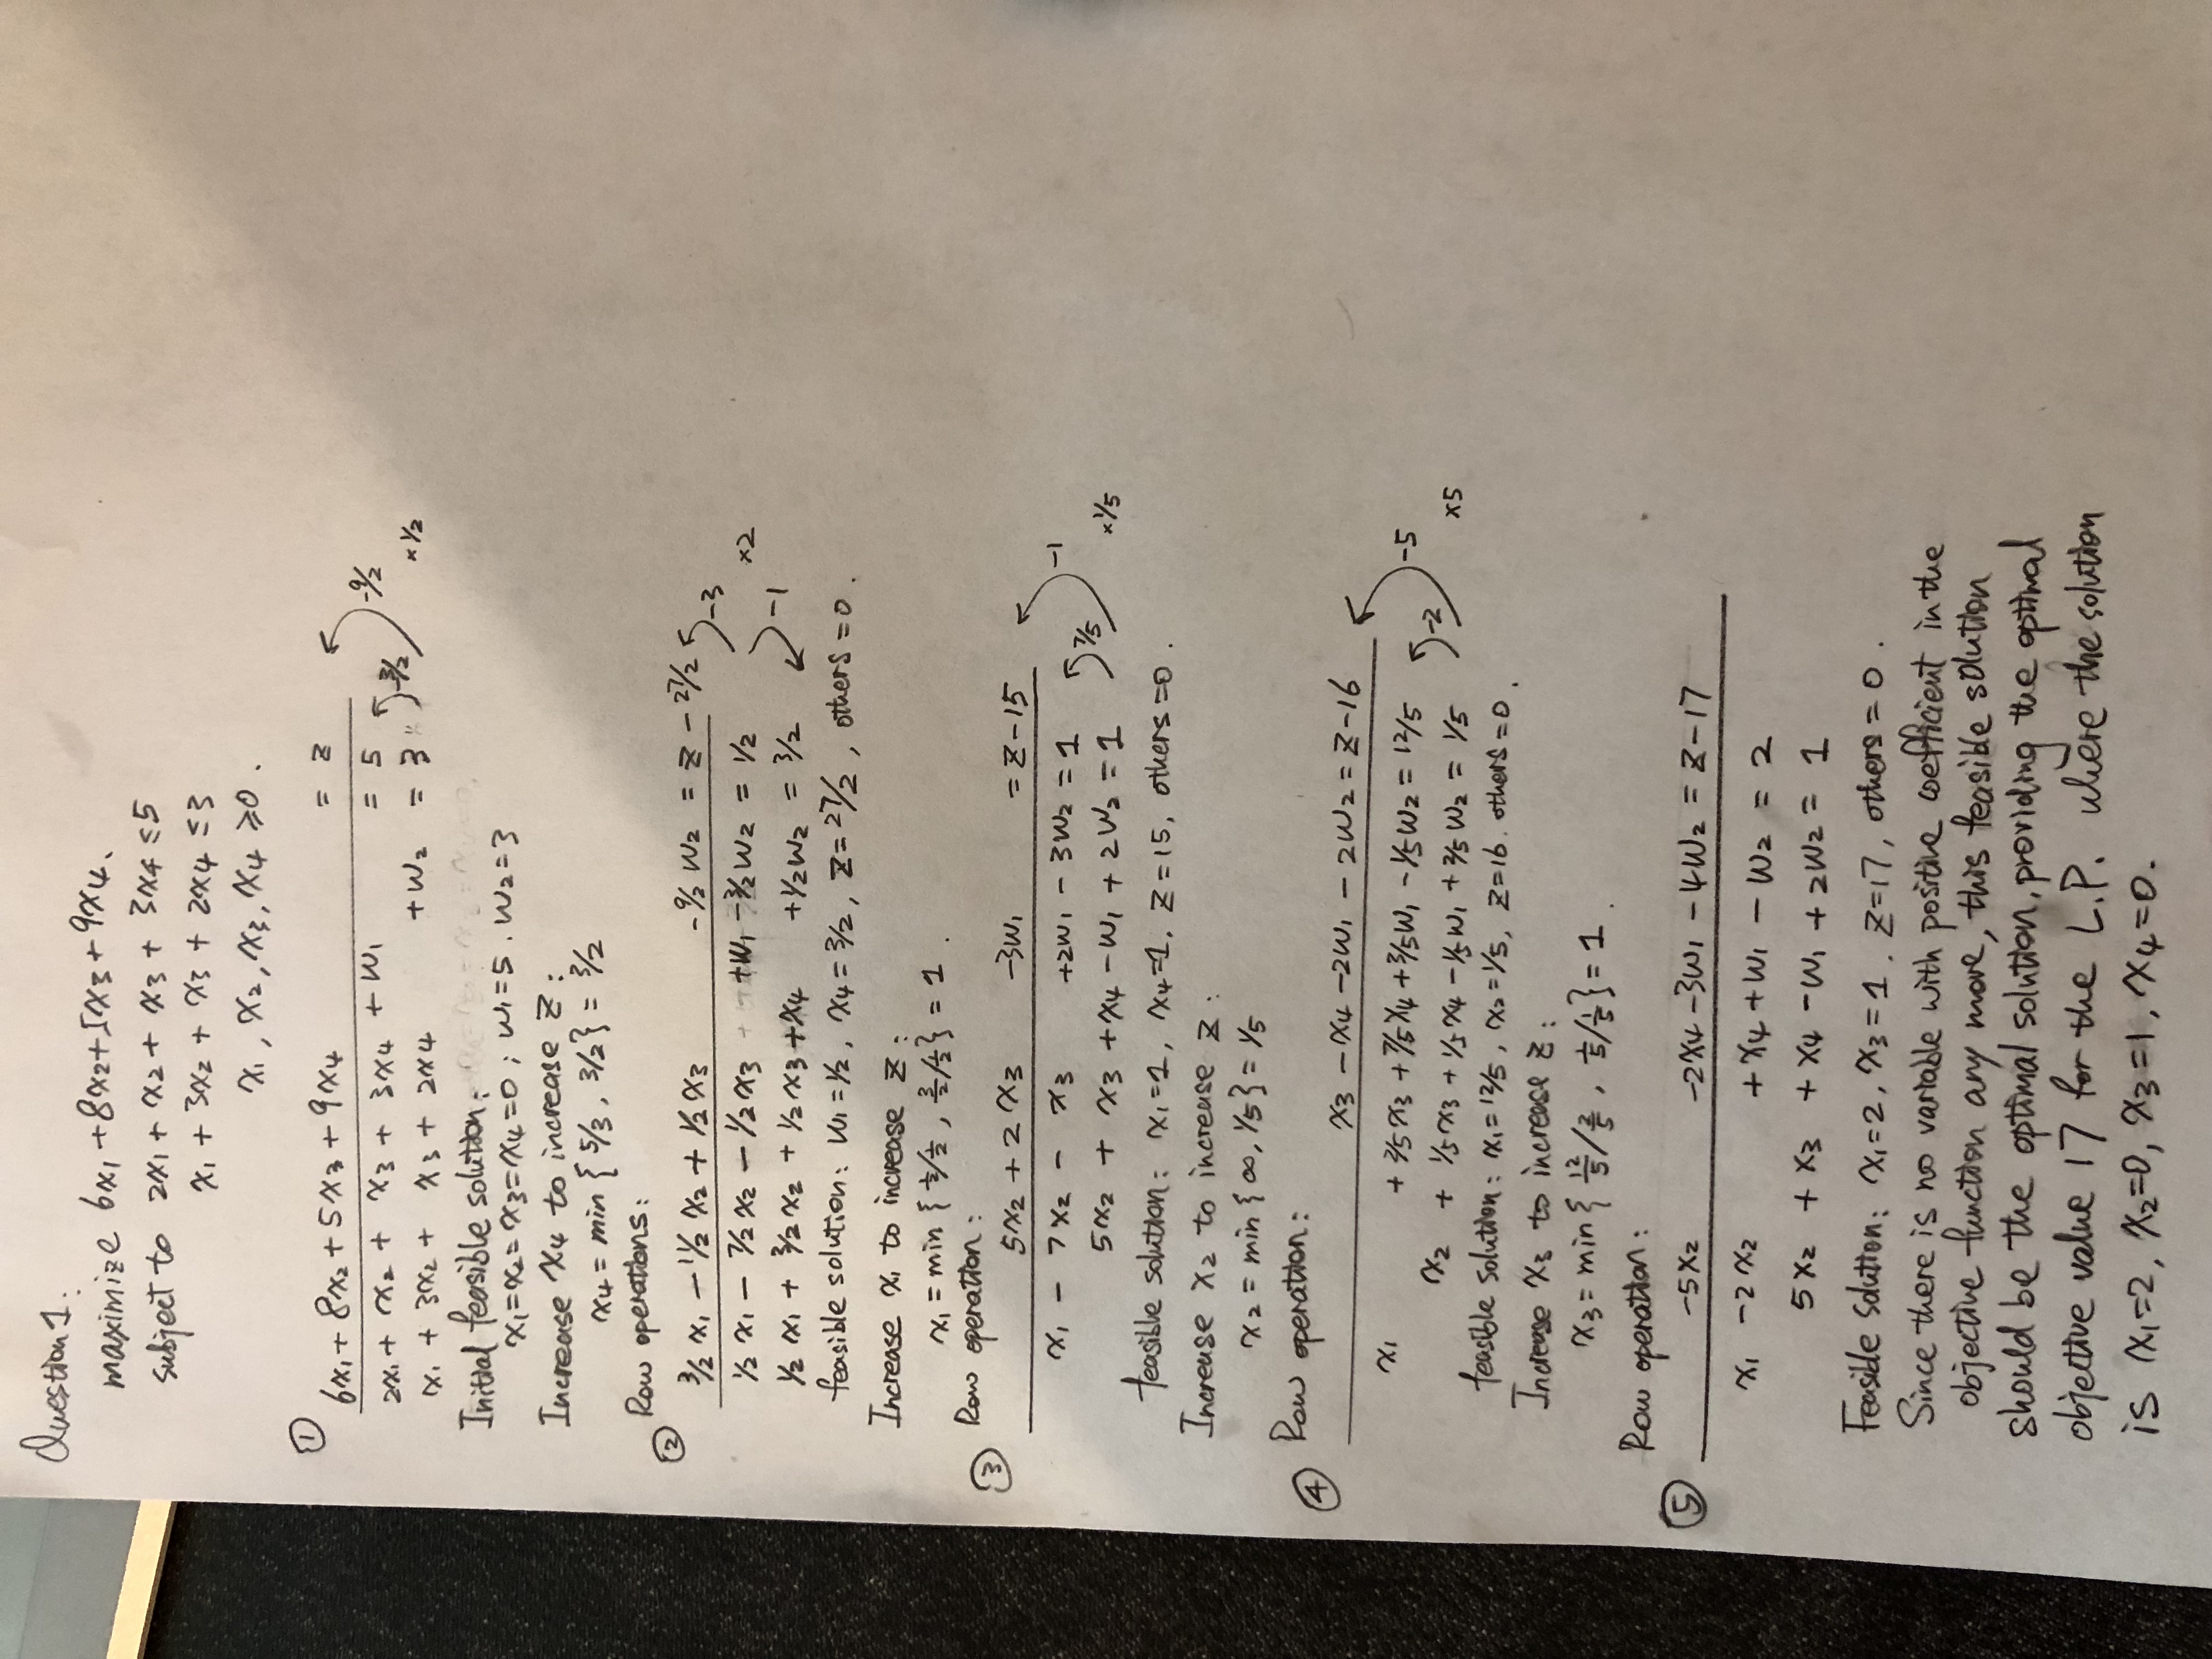 Question 1.
maximize 6x₁ + 8x₂ + 5x₃ + 9x₄.
subject to 2x₁ + x₂ + x₃ + 3x₄ ≤ 5
x₁ + 3x₂ + x₃ + 2x₄ ≤ 3
x₁, x₂, x₃, x₄ ≥ 0.
①
6x₁ + 8x₂ + 5x₃ + 9x₄ = z
2x₁ + x₂ + x₃ + 3x₄ + w₁ = 5 -3/2 -9/2
x₁ + 3x₂ + x₃ + 2x₄ + w₂ = 3 ×1/2
Initial feasible solution:
x₁=x₂=x₃=x₄=0; w₁=5. w₂=3
Increase x₄ to increase z:
x₄ = min {5/3, 3/2} = 3/2
Row operations:
②
3/2 x₁ - 11/2 x₂ + 1/2 x₃ - 9/2 w₂ = z - 27/2 -3
1/2 x₁ - 7/2 x₂ - 1/2 x₃ + w₁ - 3/2 w₂ = 1/2 ×2
1/2 x₁ + 3/2 x₂ + 1/2 x₃ + x₄ + 1/2 w₂ = 3/2 -1
feasible solution: w₁=1/2, x₄=3/2, z=27/2, others=0.
Increase x₁ to increase z:
x₁ = min {1/2/1/2, 3/2/1/2} = 1.
Row operation:
③
5x₂ + 2x₃ -3w₁ = z-15
x₁ - 7x₂ - x₃ +2w₁ - 3w₂ = 1 7/5 -1
5x₂ + x₃ + x₄ - w₁ + 2w₂ = 1 ×1/5
feasible solution: x₁=1, x₄=1. z=15, others=0.
Increase x₂ to increase z:
x₂ = min {∞, 1/5} = 1/5
Row operation:
④
x₃ - x₄ - 2w₁ - 2w₂ = z-16
x₁ + 2/5 x₃ + 7/5 x₄ + 3/5 w₁ - 1/5 w₂ = 12/5 -2 -5
x₂ + 1/5 x₃ + 1/5 x₄ - 1/5 w₁ + 2/5 w₂ = 1/5 ×5
feasible solution: x₁=12/5, x₂=1/5, z=16. others=0.
Increase x₃ to increase z:
x₃ = min {12/5/2/5, 1/5/1/5} = 1.
Row operation:
⑤
-5x₂ -2x₄ -3w₁ - 4w₂ = z-17
x₁ -2x₂ + x₄ + w₁ - w₂ = 2
5x₂ + x₃ + x₄ - w₁ + 2w₂ = 1
Feasible solution: x₁=2, x₃=1. z=17, others=0.
Since there is no variable with positive coefficient in the
objective function any more, this feasible solution
should be the optimal solution, providing the optimal
objective value 17 for the L.P. where the solution
is x₁=2, x₂=0, x₃=1, x₄=0.